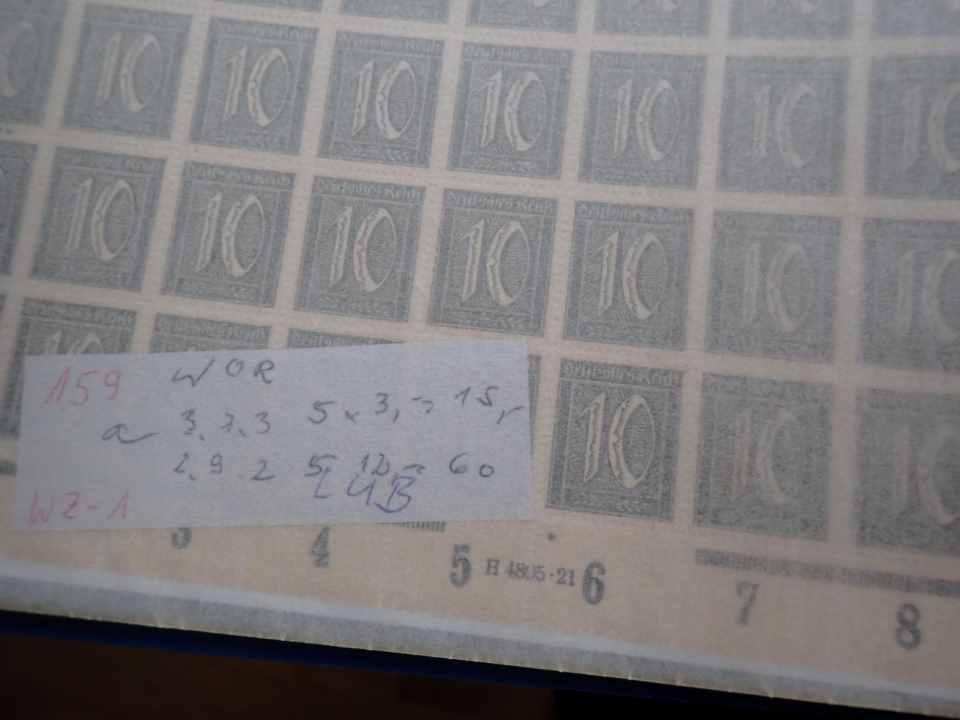 10 10 10 10 10 10 10
10 10 10 10 10 10 10
159 WOR
a 3.7.3 5 x 3,- = 15,-
2.9.2 5 12,- = 60
LUB
WZ-1
Deutsches Reich
10 10 10
3 4 5 H 4805·21 6 7 8